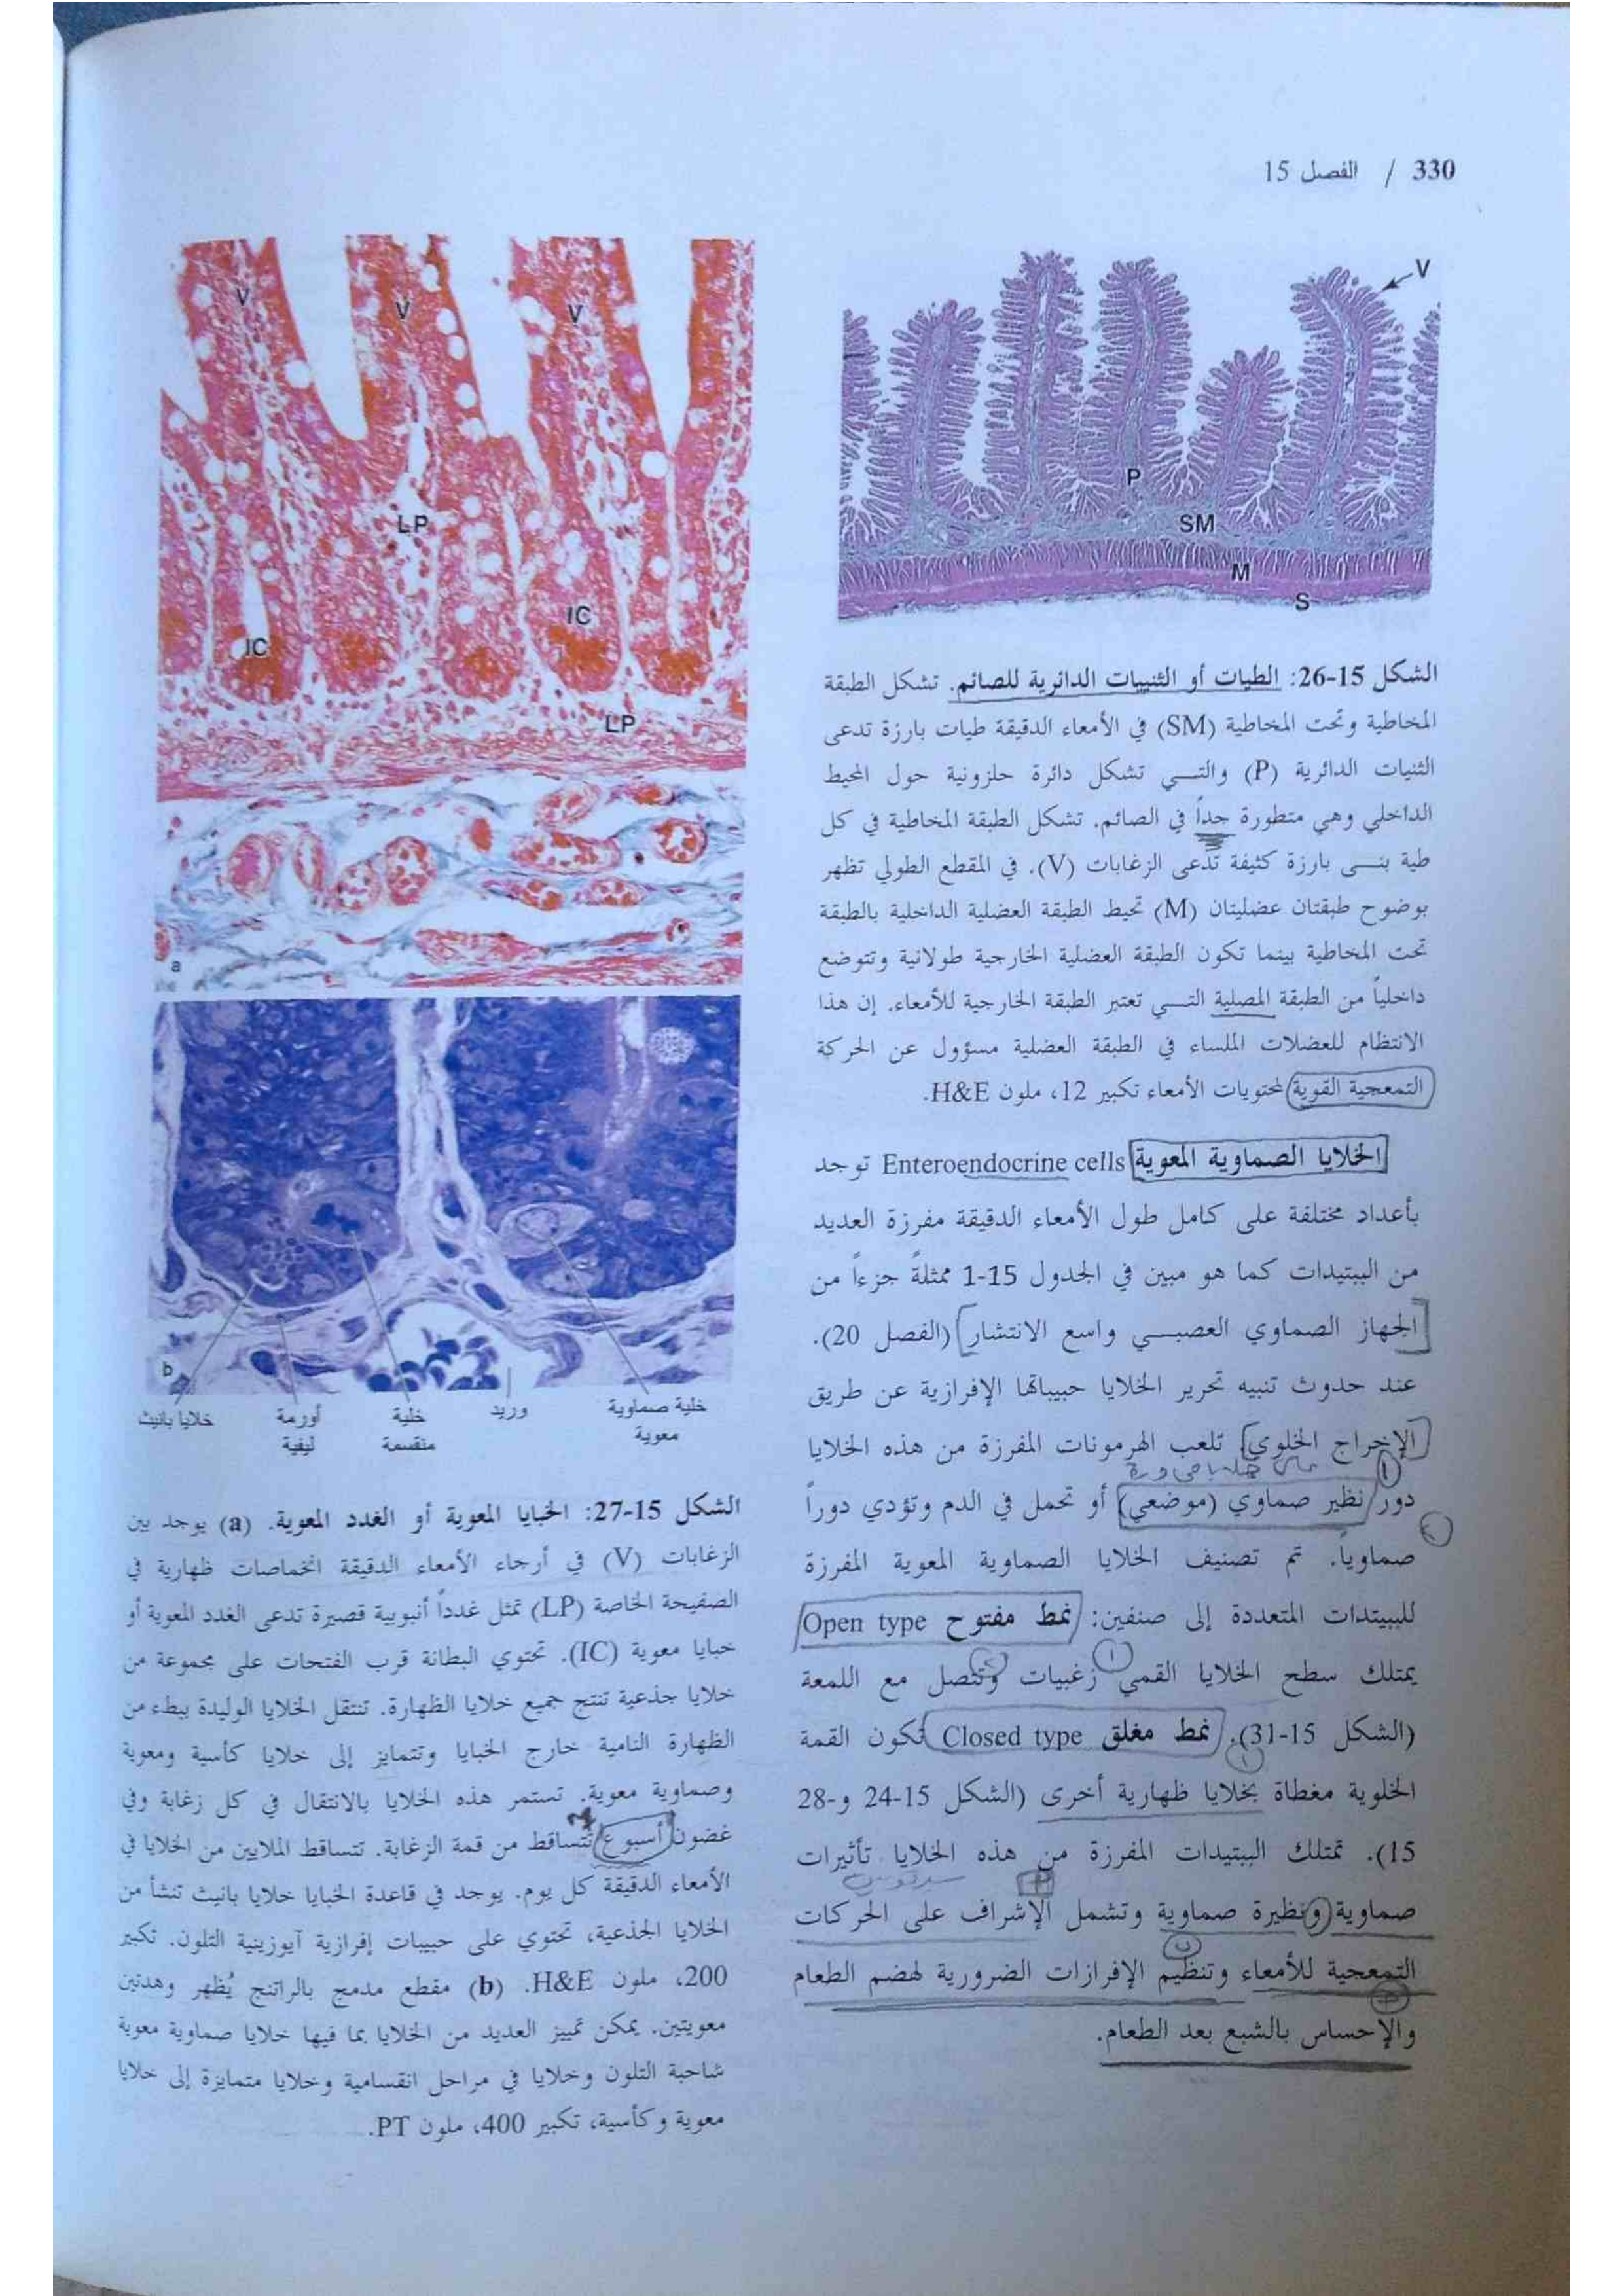 330 / الفصل 15
V
P
SM
M
S
الشكل 15-26: الطيات أو الثنيات الدائرية للصائم. تشكل الطبقة
المخاطية وتحت المخاطية (SM) في الأمعاء الدقيقة طيات بارزة تدعى
الثنيات الدائرية (P) والتي تشكل دائرة حلزونية حول المحيط
الداخلي وهي متطورة جداً في الصائم. تشكل الطبقة المخاطية في كل
طية بنى بارزة كثيفة تدعى الزغابات (V). في المقطع الطولي تظهر
بوضوح طبقتان عضليتان (M) تحيط الطبقة العضلية الداخلية بالطبقة
تحت المخاطية بينما تكون الطبقة العضلية الخارجية طولانية وتتوضع
داخلياً من الطبقة المصلية التي تعتبر الطبقة الخارجية للأمعاء. إن هذا
الانتظام للعضلات الملساء في الطبقة العضلية مسؤول عن الحركة
التمعجية القوية لمحتويات الأمعاء تكبير 12، ملون H&E.
الخلايا الصماوية المعوية Enteroendocrine cells توجد
بأعداد مختلفة على كامل طول الأمعاء الدقيقة مفرزة العديد
من الببتيدات كما هو مبين في الجدول 15-1 ممثلةً جزءاً من
الجهاز الصماوي العصبي واسع الانتشار (الفصل 20).
عند حدوث تنبيه تحرير الخلايا حبيباتها الإفرازية عن طريق
الإخراج الخلوي. تلعب الهرمونات المفرزة من هذه الخلايا
دور نظير صماوي (موضعي) أو تحمل في الدم وتؤدي دوراً
صماوياً. تم تصنيف الخلايا الصماوية المعوية المفرزة
للببتيدات المتعددة إلى صنفين: نمط مفتوح Open type
يمتلك سطح الخلايا القمي زغيبات وتتصل مع اللمعة
(الشكل 15-31). نمط مغلق Closed type تكون القمة
الخلوية مغطاة بخلايا ظهارية أخرى (الشكل 15-24 و28-
15). تمتلك الببتيدات المفرزة من هذه الخلايا تأثيرات
صماوية ونظيرة صماوية وتشمل الإشراف على الحركات
التمعجية للأمعاء وتنظيم الإفرازات الضرورية لهضم الطعام
والإحساس بالشبع بعد الطعام.
V
V
V
LP
IC
IC
LP
a
b
خلية صماوية
معوية
وريد
خلية
منقسمة
أورمة
ليفية
خلايا بانيث
الشكل 15-27: الخبايا المعوية أو الغدد المعوية. (a) يوجد بين
الزغابات (V) في أرجاء الأمعاء الدقيقة انخماصات ظهارية في
الصفيحة الخاصة (LP) تمثل غدداً أنبوبية قصيرة تدعى الغدد المعوية أو
خبايا معوية (IC). تحتوي البطانة قرب الفتحات على مجموعة من
خلايا جذعية تنتج جميع خلايا الظهارة. تنتقل الخلايا الوليدة ببطء من
الظهارة النامية خارج الخبايا وتتمايز إلى خلايا كأسية ومعوية
وصماوية معوية. تستمر هذه الخلايا بالانتقال في كل زغابة وفي
غضون أسبوع تتساقط من قمة الزغابة. تتساقط الملايين من الخلايا في
الأمعاء الدقيقة كل يوم. يوجد في قاعدة الخبايا خلايا بانيث تنشأ من
الخلايا الجذعية، تحتوي على حبيبات إفرازية آيوزينية التلون. تكبير
200، ملون H&E. (b) مقطع مدمج بالراتنج يُظهر وهدتين
معويتين. يمكن تمييز العديد من الخلايا بما فيها خلايا صماوية معوية
شاحبة التلون وخلايا في مراحل انقسامية وخلايا متمايزة إلى خلايا
معوية وكأسية، تكبير 400، ملون PT.